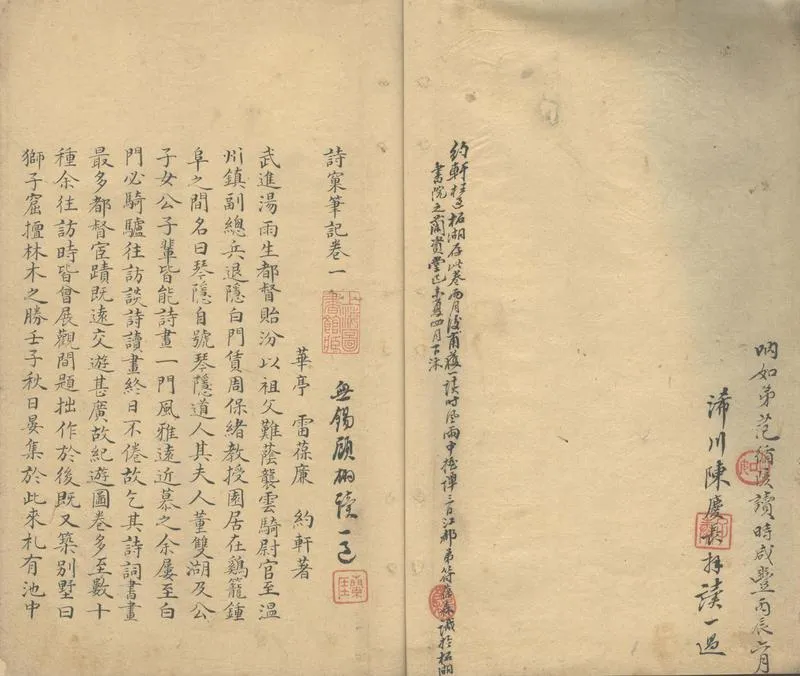 吶如弟范循陔讀時咸豐丙辰六月
浠川陳慶長拜讀一過
約軒
柘湖存此卷兩月後
一讀時風雨中
三日江都弟符
誠於柘湖
書院之蘭賞堂己未夏四月
詩窠筆記卷一
上海圖書館藏
華亭 雷葆廉 約軒著
無錫顧翃讀一過
武進湯雨生都督貽汾以祖父難蔭襲雲騎尉官至溫
州鎮副總兵退隱白門賃周保緒教授園居在雞籠鍾
阜之間名曰琴隱自號琴隱道人其夫人董雙湖及公
子女公子輩皆能詩畫一門風雅遠近慕之余屢至白
門必騎驢往訪談詩讀畫終日不倦故乞其詩詞書畫
最多都督宦蹟既遠交遊甚廣故紀遊圖卷多至數十
種余往訪時皆曾展觀間題拙作於後既又築別墅曰
獅子窟擅林木之勝壬子秋日宴集於此來札有池中